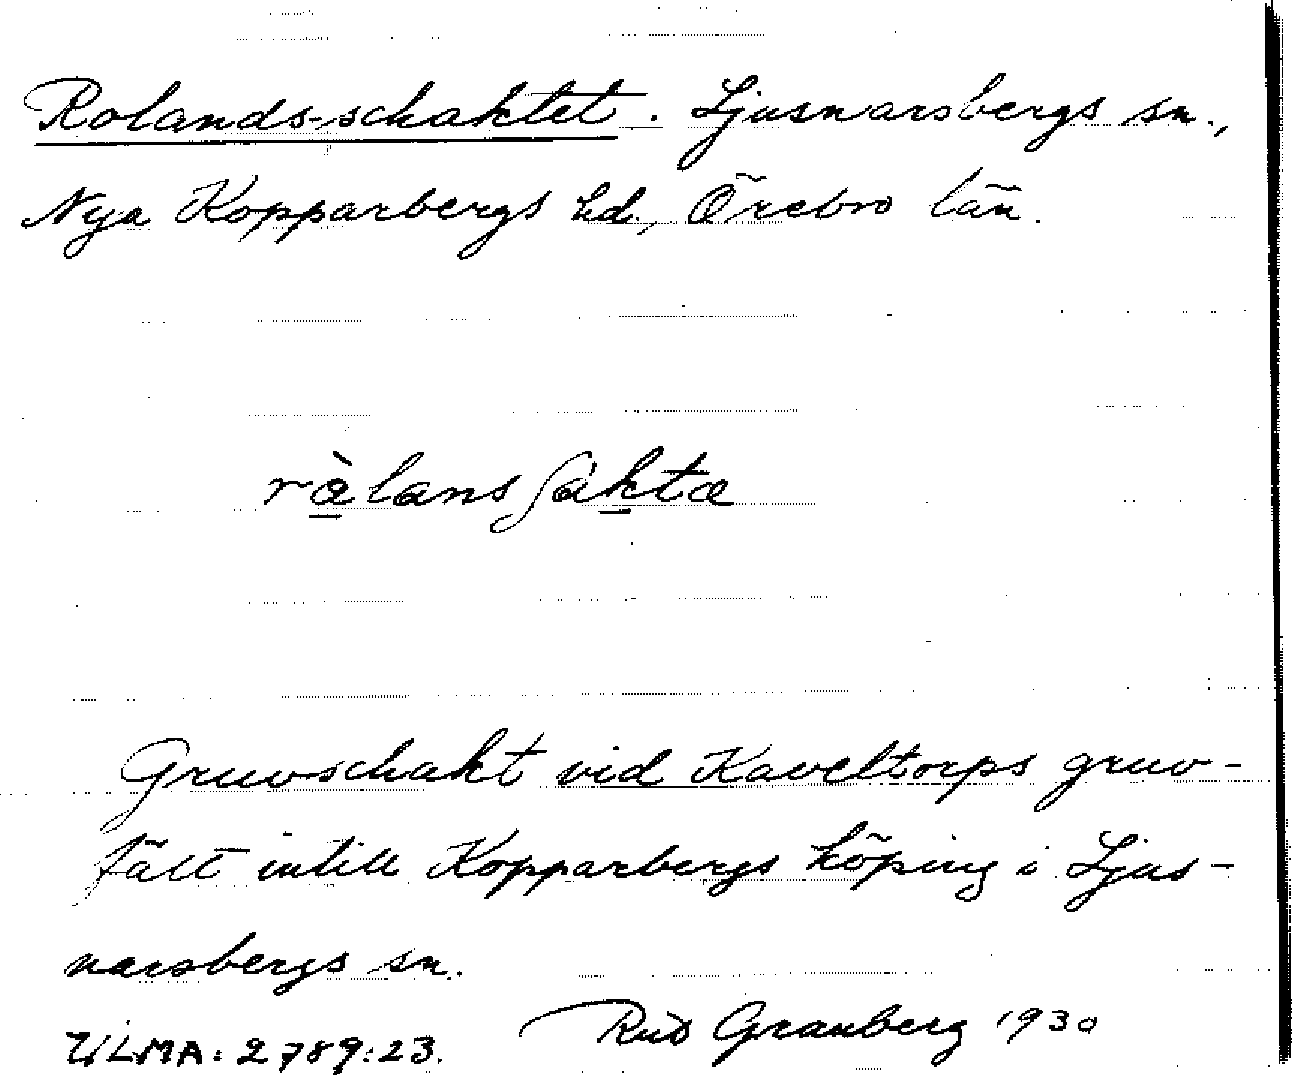 Rolands-schaktet. Ljusnarsbergs sn.,
Nya Kopparbergs hd., Örebro län.
Gruvschakt vid Kaveltorps gruv-
fält intill Kopparbergs köping i Ljus-
narsbergs sn.
ULMA: 2789:23. Rud Granberg 1930